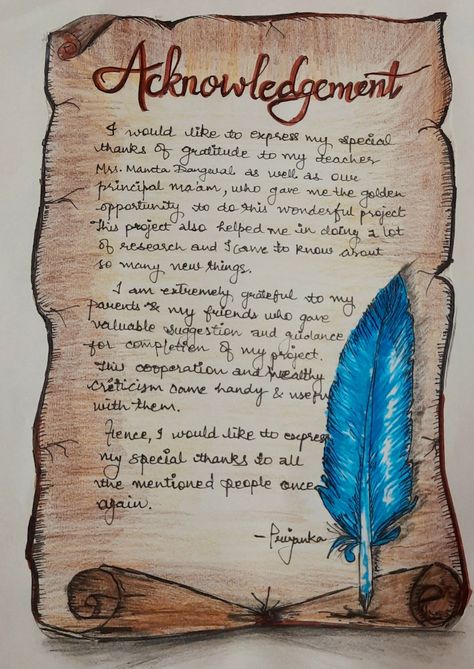 Acknowledgement
I would like to express my special
thanks of gratitude to my teacher
Mrs. Mamta Bangwal as well as our
principal ma'am, who gave me the golden
opportunity to do this wonderful project
This project also helped me in doing a lot
of research and I came to know about
so many new things.
I am extremely grateful to my
parents & my friends who gave
valuable suggestion and guidance
for completion of my project.
This cooperation and healthy
criticism came handy & useful
with them.
Hence, I would like to express
my special thanks to all
the mentioned people once
again.
-Priyanka